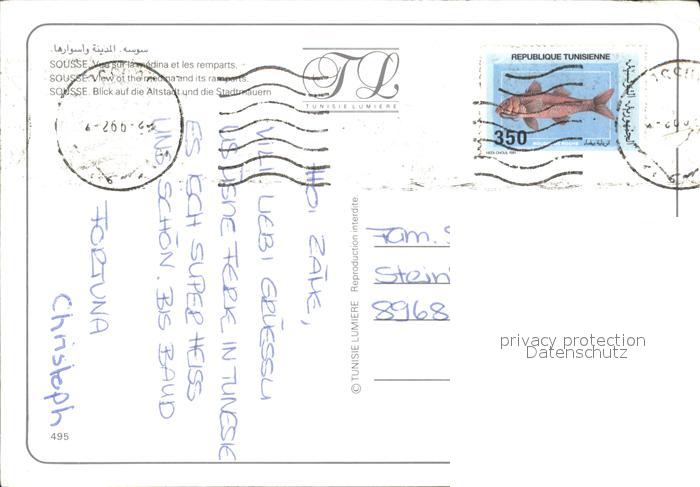 سوسه. المدينة وأسوارها.
SOUSSE. Vue sur la médina et les remparts.
SOUSSE. View of the medina and its ramparts.
SOUSSE. Blick auf die Altstadt und die Stadtmauern
TL
TUNISIE LUMIERE
REPUBLIQUE TUNISIENNE
350
HOI ZÄME,
VILLI LIEBI GRÜESSLI
US ÜSNE FERIE IN TUNESIE
ES ISCH SUPER HEISS
UND SCHÖN. BIS BALD
FORTUNA
Christoph
© TUNISIE LUMIERE Reproduction interdite.
Fam. S
Stein
8968
privacy protection
Datenschutz
495